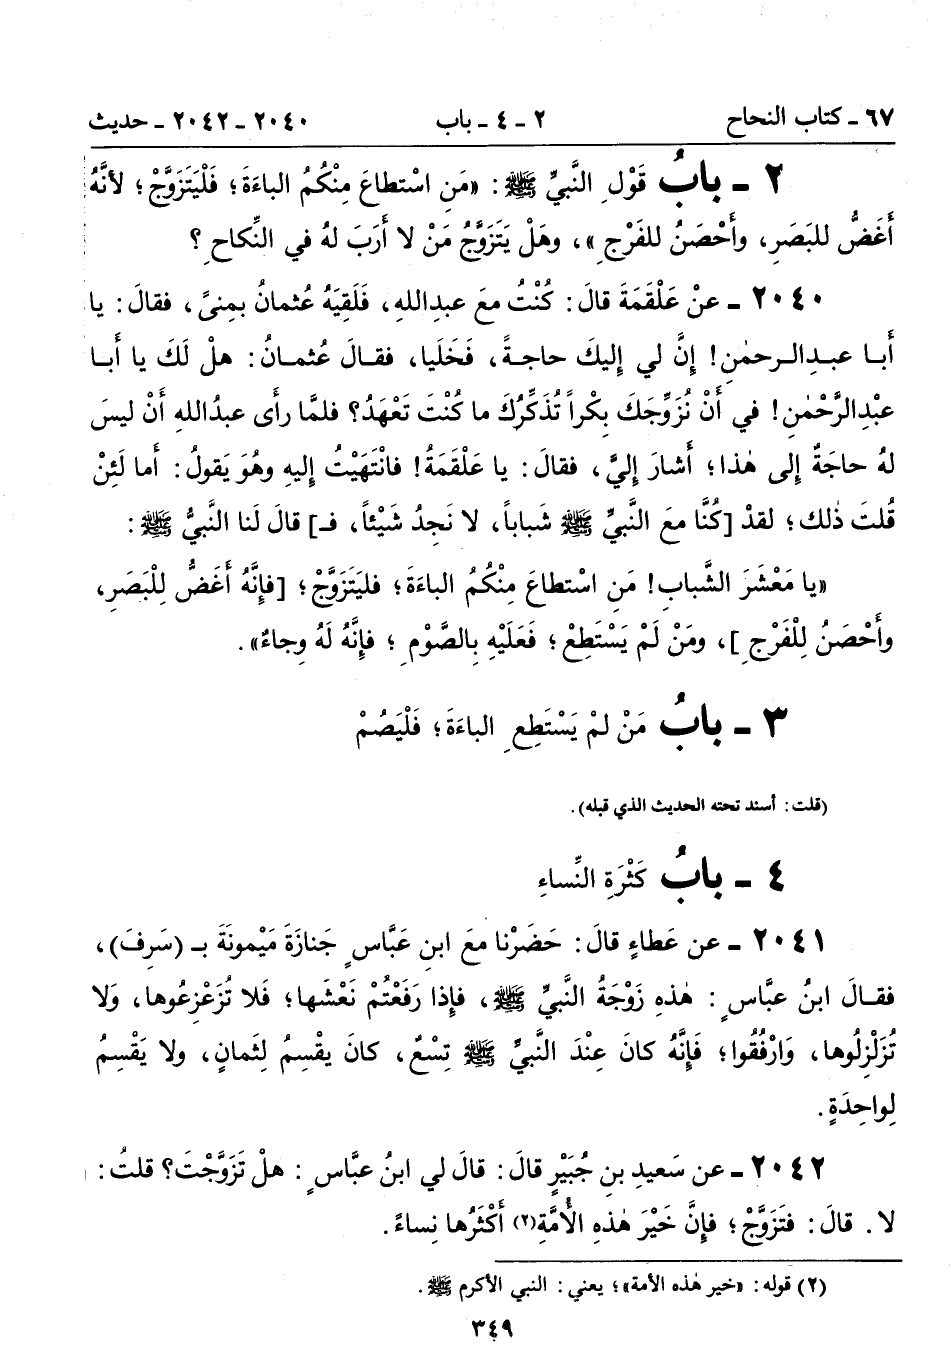 ٦٧ - كتاب النحاح ٢ - ٤ - باب ٢٠٤٠ - ٢٠٤٢ - حديث
٢ - بابُ قَوْلِ النَّبيِّ ﷺ : «مَن اسْتطاعَ مِنْكُم الباءَةَ؛ فَلْيَتَزَوَّجْ؛ لأنَّهُ
أَغَضُّ للبَصَرِ، وأَحْصَنُ للفَرْجِ»، وهَلْ يَتَزَوَّجُ مَنْ لا أَرَبَ لهُ في النِّكاحِ ؟
٢٠٤٠ - عنْ عَلْقَمَةَ قالَ: كُنْتُ معَ عبدِاللهِ، فَلَقِيَهُ عُثمانُ بمِنىً، فقالَ: يا
أبا عبدِالرحمٰنِ! إنَّ لي إليكَ حاجةً، فَخَلَيا، فقالَ عُثمانُ: هلْ لَكَ يا أبا
عبْدِالرَّحْمٰنِ! في أنْ نُزَوِّجَكَ بِكْراً تُذَكِّرُكَ ما كُنْتَ تَعْهَدُ؟ فلمَّا رأى عبدُاللهِ أنْ ليسَ
لهُ حاجَةٌ إلى هٰذا؛ أشارَ إليَّ، فقالَ: يا عَلْقَمَةُ! فانْتَهَيْتُ إليهِ وهُوَ يَقولُ: أما لَئِنْ
قُلتَ ذٰلك؛ لقدْ [كُنَّا معَ النَّبيِّ ﷺ شَباباً، لا نَجِدُ شَيْئاً، فـ] قالَ لَنا النَّبيُّ ﷺ :
«يا مَعْشَرَ الشَّبابِ! مَن اسْتطاعَ مِنْكُمُ الباءَةَ؛ فليَتَزَوَّجْ؛ [فإنَّهُ أَغَضُّ لِلْبَصَرِ،
وأَحْصَنُ لِلْفَرْجِ]، ومَنْ لَمْ يَسْتَطِعْ؛ فَعَلَيْهِ بِالصَّوْمِ؛ فإنَّهُ لَهُ وِجاءٌ».
٣ - بابُ مَنْ لمْ يَسْتَطِعِ الباءَةَ؛ فَلْيَصُمْ
(قلت: أسند تحته الحديث الذي قبله).
٤ - بابُ كَثْرَةِ النِّساءِ
٢٠٤١ - عن عَطاءٍ قالَ: حَضَرْنا معَ ابنِ عَبَّاسٍ جَنازَةَ مَيْمونَةَ بـ (سَرِفَ)،
فقالَ ابنُ عبَّاسٍ: هٰذهِ زَوْجَةُ النَّبيِّ ﷺ، فإذا رَفَعْتُمْ نَعْشَها؛ فلا تُزَعْزِعُوها، وَلا
تُزَلْزِلُوها، وَارْفُقُوا؛ فَإِنَّهُ كانَ عِنْدَ النَّبيِّ ﷺ تِسْعٌ، كانَ يقْسِمُ لِثمانٍ، ولا يَقْسِمُ
لِواحِدَةٍ.
٢٠٤٢ - عن سَعيدِ بنِ جُبَيْرٍ قالَ: قالَ لي ابنُ عبَّاسٍ: هلْ تَزَوَّجْتَ؟ قلتُ:
لا. قالَ: فتَزَوَّجْ؛ فإنَّ خَيْرَ هٰذهِ الأُمَّةِ(٢) أَكْثَرُها نِساءً.
(٢) قوله: «خير هٰذه الأمة»؛ يعني: النبي الأكرم ﷺ.
٣٤٩